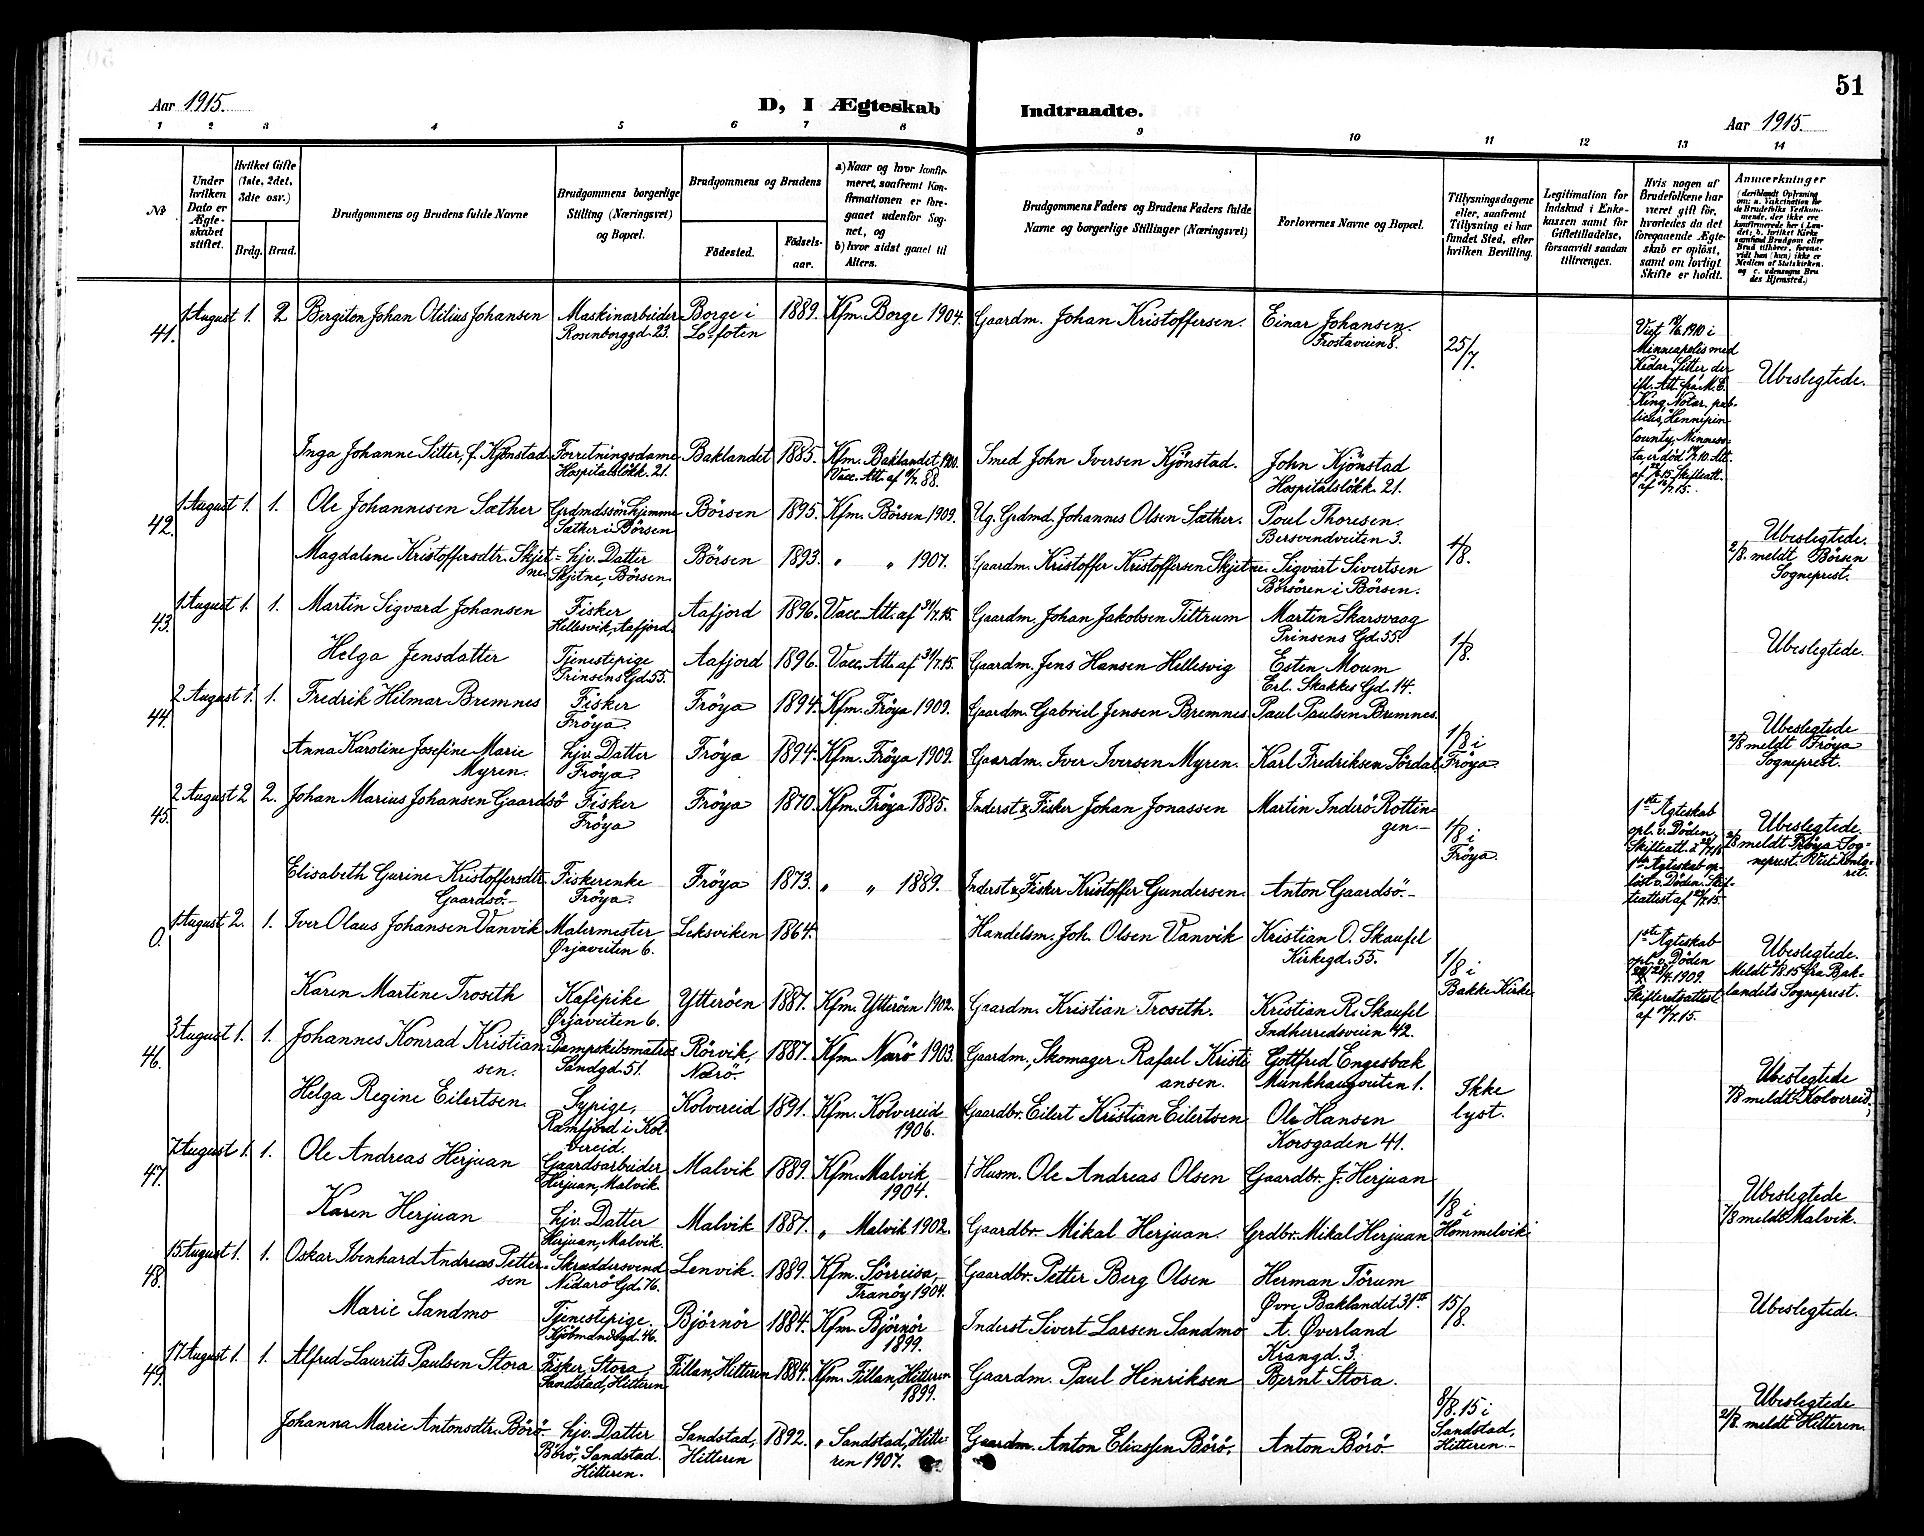 51
Aar 1915.
D, I Ægteskab
Indtraadte.
Aar 1915.
1 2 3 4 5 6 7 8 9 10 11 12 13 14
No
Under hvilken Dato er Ægteskabet stiftet.
Hvilket Gifte (1ste, 2det, 3die osv.)
Brdg.
Brud.
Brudgommens og Brudens fulde Navne
Brudgommens borgerlige Stilling (Næringsvei) og Bopæl.
Brudgommens og Brudens
Fødested.
Fødsels-aar.
a) Naar og hvor konfirmeret, saafremt Konfirmationen er foregaaet udenfor Sognet, og
b) hvor sidst gaaet til Alters.
Brudgommens Faders og Brudens Faders fulde Navne og borgerlige Stillinger (Næringsvei)
Forlovernes Navne og Bopæl.
Tillysningsdagene eller, saafremt Tillysning ei har fundet Sted, efter hvilken Bevilling.
Legitimation for Indskud i Enkekassen samt for Giftetilladelse, forsaavidt saadan tiltrænges.
Hvis nogen af Brudefolkene har været gift før, hvorledes da det foregaaende Ægteskab er opløst, samt om lovligt Skifte er holdt.
Anmærkninger
41. 1 August 1. 2 Bergiton Johan Otilius Johansen
Maskinarbeider
Rosenborggd. 23.
Borge i
Lofoten
1889. Kfm. Borge 1904. Gaardm. Johan Kristoffersen. Einar Johansen.
Frostaveien 8.
25/7.
Minneapolis med
King Notar. pub-
licus, Hennipin
County, Minneso-
Ubeslegtede.
Inga Johanne Sitter, f. Kjönstad
Forretningsdame
Hospitalslökk. 21.
Baklandet 1885. Kfm. Baklandet 1900.
Smed John Iversen Kjönstad. John Kjönstad
Hospitalslökk. 21.
42. 1 August 1. 1. Ole Johannesen Sæther
Grdmdssön hjemme
Sæther i Börsen
Börsen 1895. Kfm. Börsen 1909. Ug. Grdmd. Johannes Olsen Sæther. Poul Thoresen.
Bersvendveiten 3.
1/8.
Ubeslegtede.
2/8. meldt Börsen
Sogneprest.
Magdalene Kristoffersdtr. Skjet-
ne.
hjv. Datter
Skjetne, Börsen.
Börsen 1893. " " 1907. Gaardm. Kristoffer Kristoffersen Skjetne. Sigvart Sivertsen
Börsören i Börsen.
43. 1 August 1. 1. Martin Sigvard Johansen
Fisker
Hellesvik, Aafjord.
Aafjord 1896. Vacc. Att. af 31/7.15. Gaardm. Johan Jakobsen Tiltrum Martin Skarsvaag
Prinsens Gd. 55
1/8.
Ubeslegtede.
Helga Jensdatter
Tjenestepige
Prinsens Gd. 55.
Aafjord 1896. Vacc. Att. af 31/7.15. Gaardm. Jens Hansen Hellesvig Esten Moum
Erl. Skakkes Gd. 14.
44. 2 August 1. 1. Fredrik Hilmar Bremnes
Fisker
Fröya.
Fröya 1894. Kfm. Fröya 1909. Gaardm. Gabriel Jensen Bremnes Paul Paulsen Bremnes.
1/8 i
Fröya.
Ubeslegtede
2/8 meldt Fröya
Sogneprest.
Anna Karoline Josefine Marie
Myren.
hjv. Datter
Fröya
Fröya 1894. Kfm. Fröya 1909. Gaardm. Iver Iversen Myren. Karl Fredriksen Sördal
45. 2 August 2 2. Johan Marius Johansen Gaardsö
Fisker
Fröya
Fröya 1870. Kfm. Fröya 1885. Inderst & Fisker Johan Jonassen Martin Inderö Rottin-
gen.
1/8 i
Fröya.
1ste Ægteskab
opl. v. Döden.
Ubeslegtede.
2/8 meldt Fröya Sog-
Elisabeth Gurine Kristoffersdtr.
Gaardsö.
Fiskerenke
Fröya.
Fröya 1873. " " 1889. Inderst & Fisker Kristoffer Gundersen. Anton Gaardsö.
0. 1 August 2. 1. Iver Olaus Johansen Vanvik
Malermester
Ørjaveiten 6.
Leksviken 1864. Handelsm. Joh. Olsen Vanvik Kristian O. Skaufel
Kirkegd. 55.
1/8 i
Bakke Kirke
1ste Ægteskab
opl. v. Döden
1909.
Skifteretsattest
Ubeslegtede.
landets Sogneprest.
Karen Martine Troseth
Kafépike
Ørjaveiten 6.
Ytteröen 1887. Kfm. Ytteröen 1902. Gaardm. Kristian Troseth. Kristian R. Skaufel
Indherredsveien 42.
46. 3 August 1. 1. Johannes Konrad Kristian-
sen.
Dampskibsmatros
Sandgd. 51.
Rörvik,
Nærö.
1887. Kfm. Nærö 1903. Gaardm., Skomager Rafael Kristi-
ansen.
Gottfred Engesbak
Munkhaugveiten 1.
Ikke
lyst.
Ubeslegtede
7/8 meldt Kolvereid
Helga Regine Eilertsen.
Sypige,
Ramfjord i Kol-
vereid.
Kolvereid 1891. Kfm. Kolvereid
1906.
Gaardbr. Eilert Kristian Eilertsen Ole Hansen
Korsgaden 41.
47. 7 August 1. 1. Ole Andreas Herjuan
Gaardsarbeider
Herjuan, Malvik.
Malvik 1889. Kfm. Malvik
1904.
† Husm. Ole Andreas Olsen Gaardbr. J. Herjuan
1/8 i
Hommelvik
Ubeslegtede
7/8 meldt Malvik.
Karen Herjuan
hjv. Datter
Herjuan, Malvik.
Malvik 1887. " Malvik 1902. Gaardbr. Mikal Herjuan. Grdbr. Mikal Herjuan
48. 15 August 1. 1. Oskar Ibenhard Andreas Petter-
sen
Skræddersvend
Nidarö Gd. 76.
Lenvik. 1889. Kfm. Sörreisa,
Tranöy 1904.
Gaardbr. Petter Berg Olsen Herman Törum
Øvre Baklandet 31
15/8.
Ubeslegtede.
Marie Sandmo
Tjenestepige.
Kjöbmandsgd. 46.
Björnör 1884. Kfm. Björnör
1899.
Inderst Sivert Larsen Sandmo A. Øverland
Krangd. 3.
49. 17 August 1. 1. Alfred Laurits Paulsen Stora
Fisker, Stora
Sandstad, Hitteren
Fillan, Hitteren 1884. Kfm. Fillan, Hitteren
1899.
Gaardm. Paul Henriksen Bernt Stora.
8/8. 15 i
Sandstad,
Hitteren.
Ubeslegtede
2/8 meldt Hitteren.
Johanna Marie Antonsdtr. Börö
hjv. Datter
Börö, Sandstad.
Hitteren.
Sandstad,
Hitteren
1892. " Sandstad, Hitte-
ren 1907.
Gaardm. Anton Eliassen Börö. Anton Börö